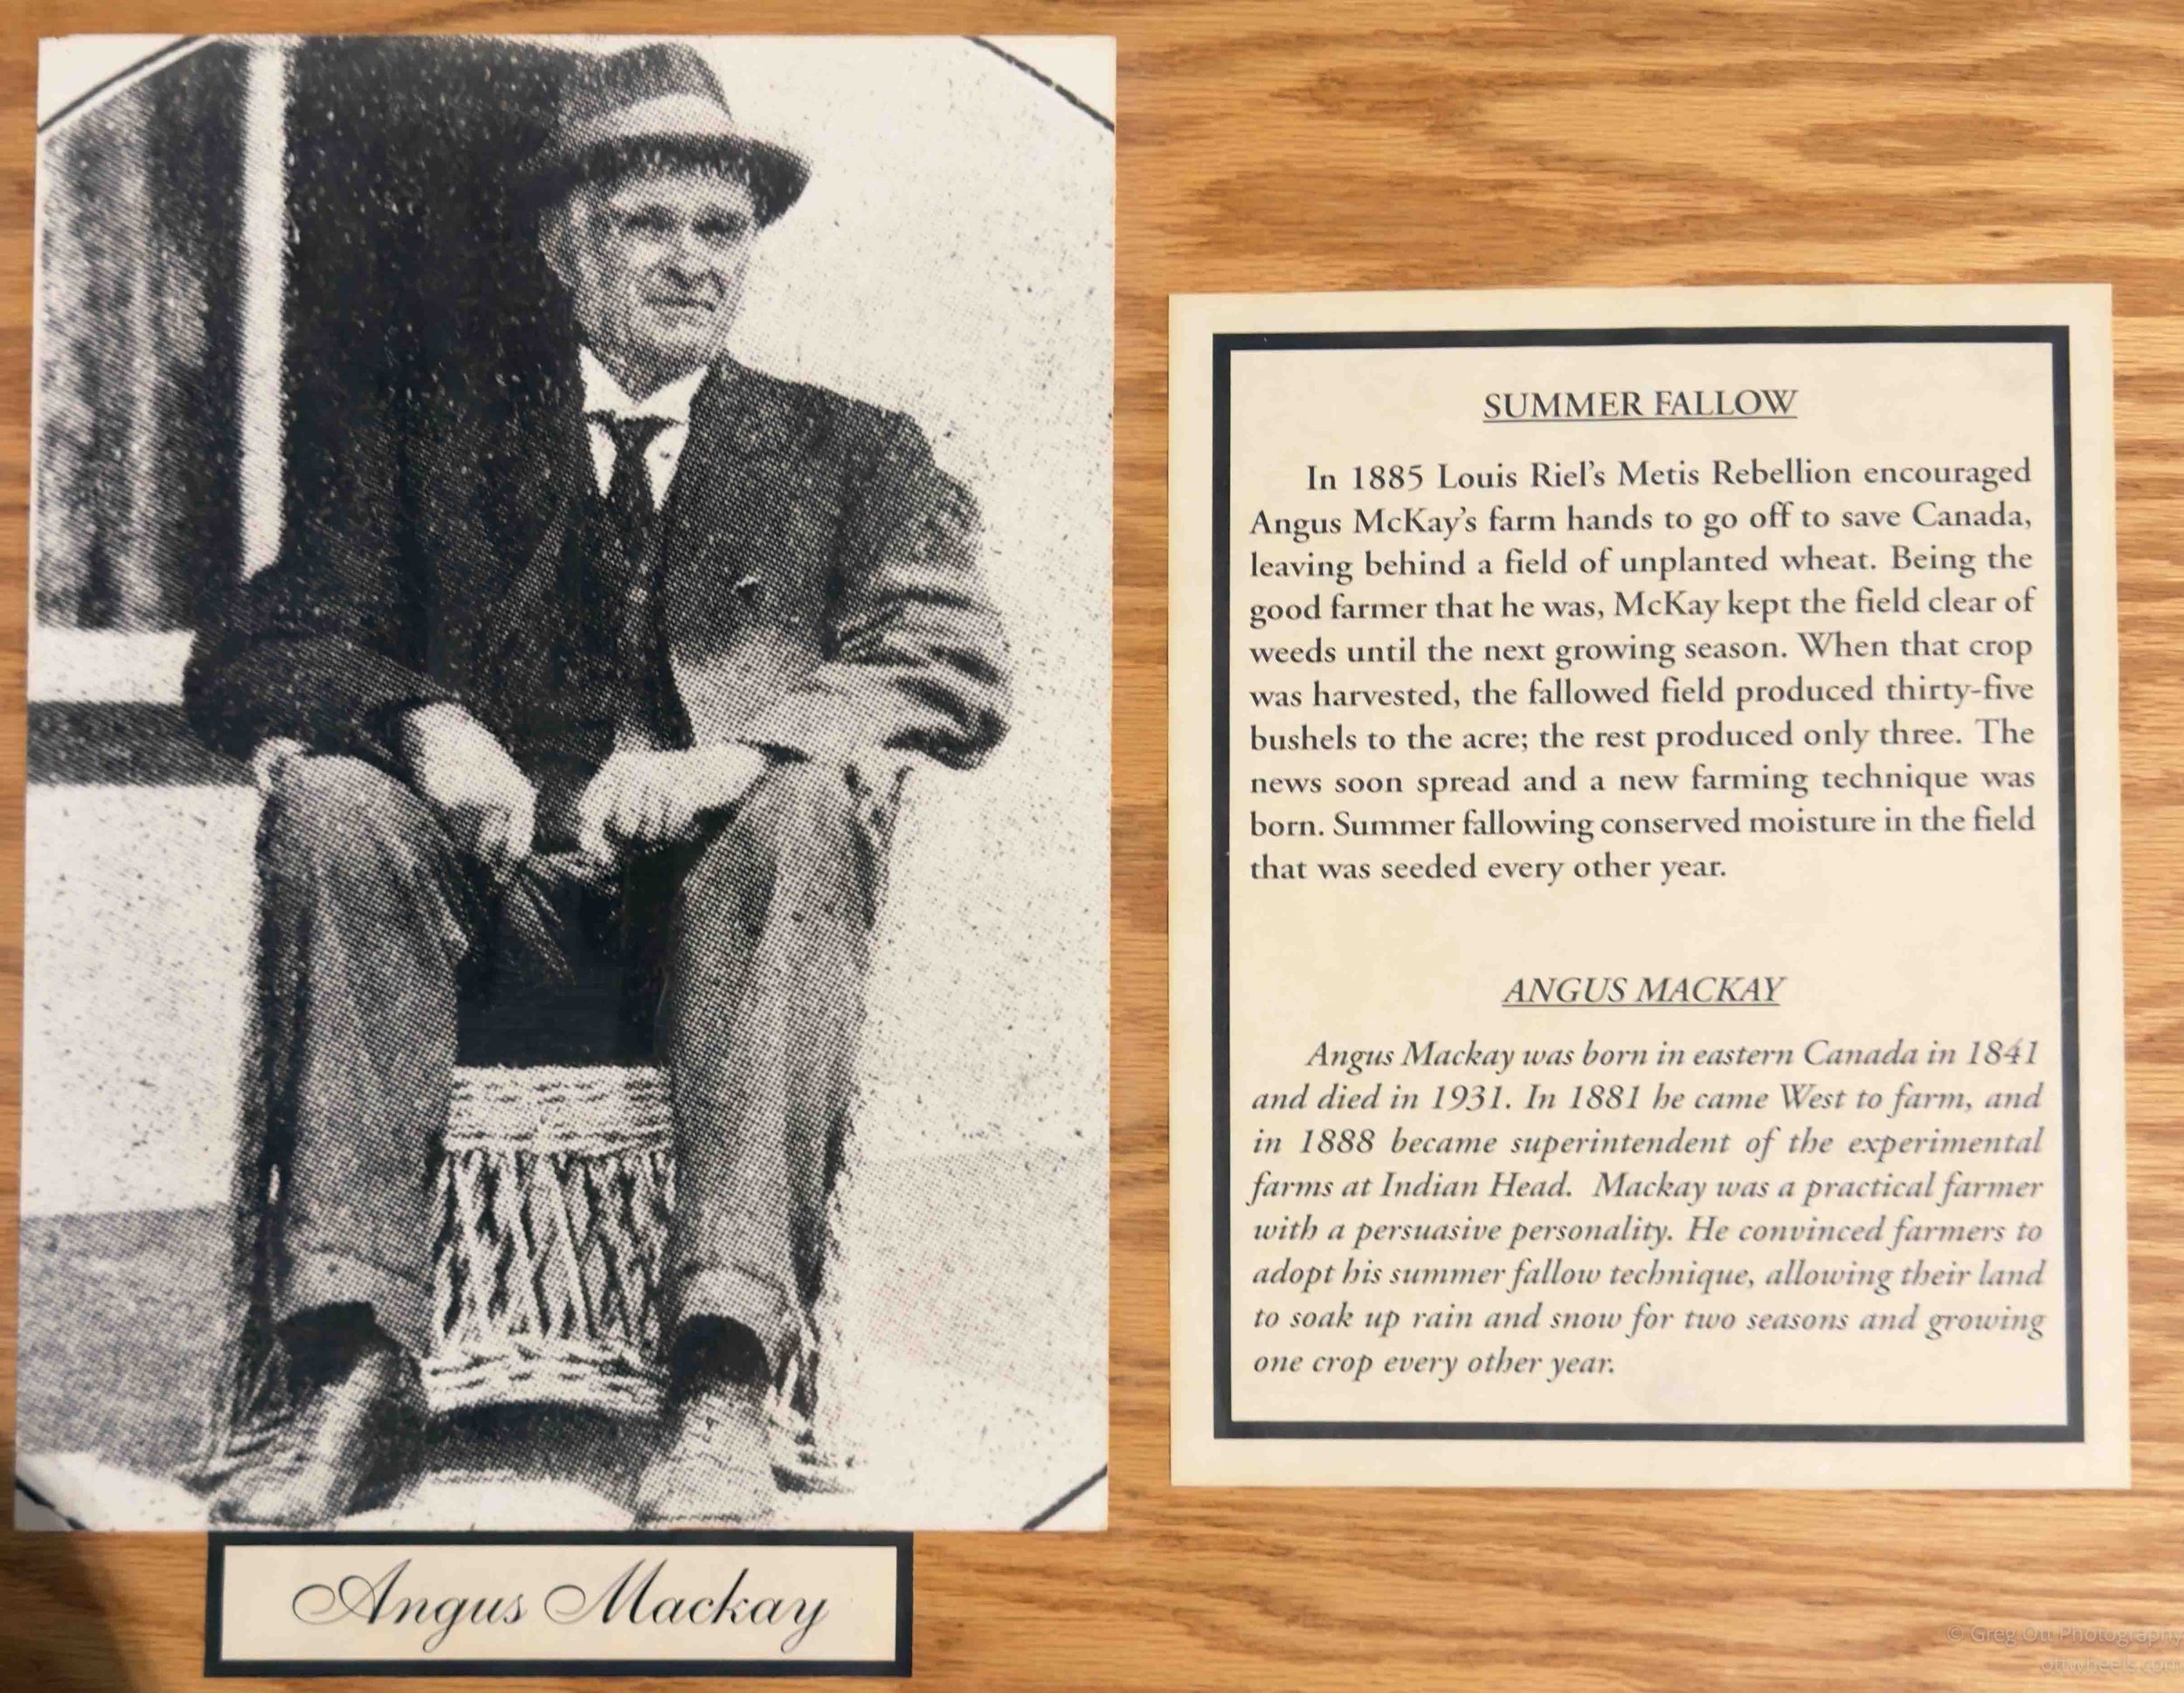 SUMMER FALLOW
In 1885 Louis Riel's Metis Rebellion encouraged
Angus McKay's farm hands to go off to save Canada,
leaving behind a field of unplanted wheat. Being the
good farmer that he was, McKay kept the field clear of
weeds until the next growing season. When that crop
was harvested, the fallowed field produced thirty-five
bushels to the acre; the rest produced only three. The
news soon spread and a new farming technique was
born. Summer fallowing conserved moisture in the field
that was seeded every other year.
ANGUS MACKAY
Angus Mackay was born in eastern Canada in 1841
and died in 1931. In 1881 he came West to farm, and
in 1888 became superintendent of the experimental
farms at Indian Head. Mackay was a practical farmer
with a persuasive personality. He convinced farmers to
adopt his summer fallow technique, allowing their land
to soak up rain and snow for two seasons and growing
one crop every other year.
Angus Mackay
© Greg Ott Photography
ottwheels.com